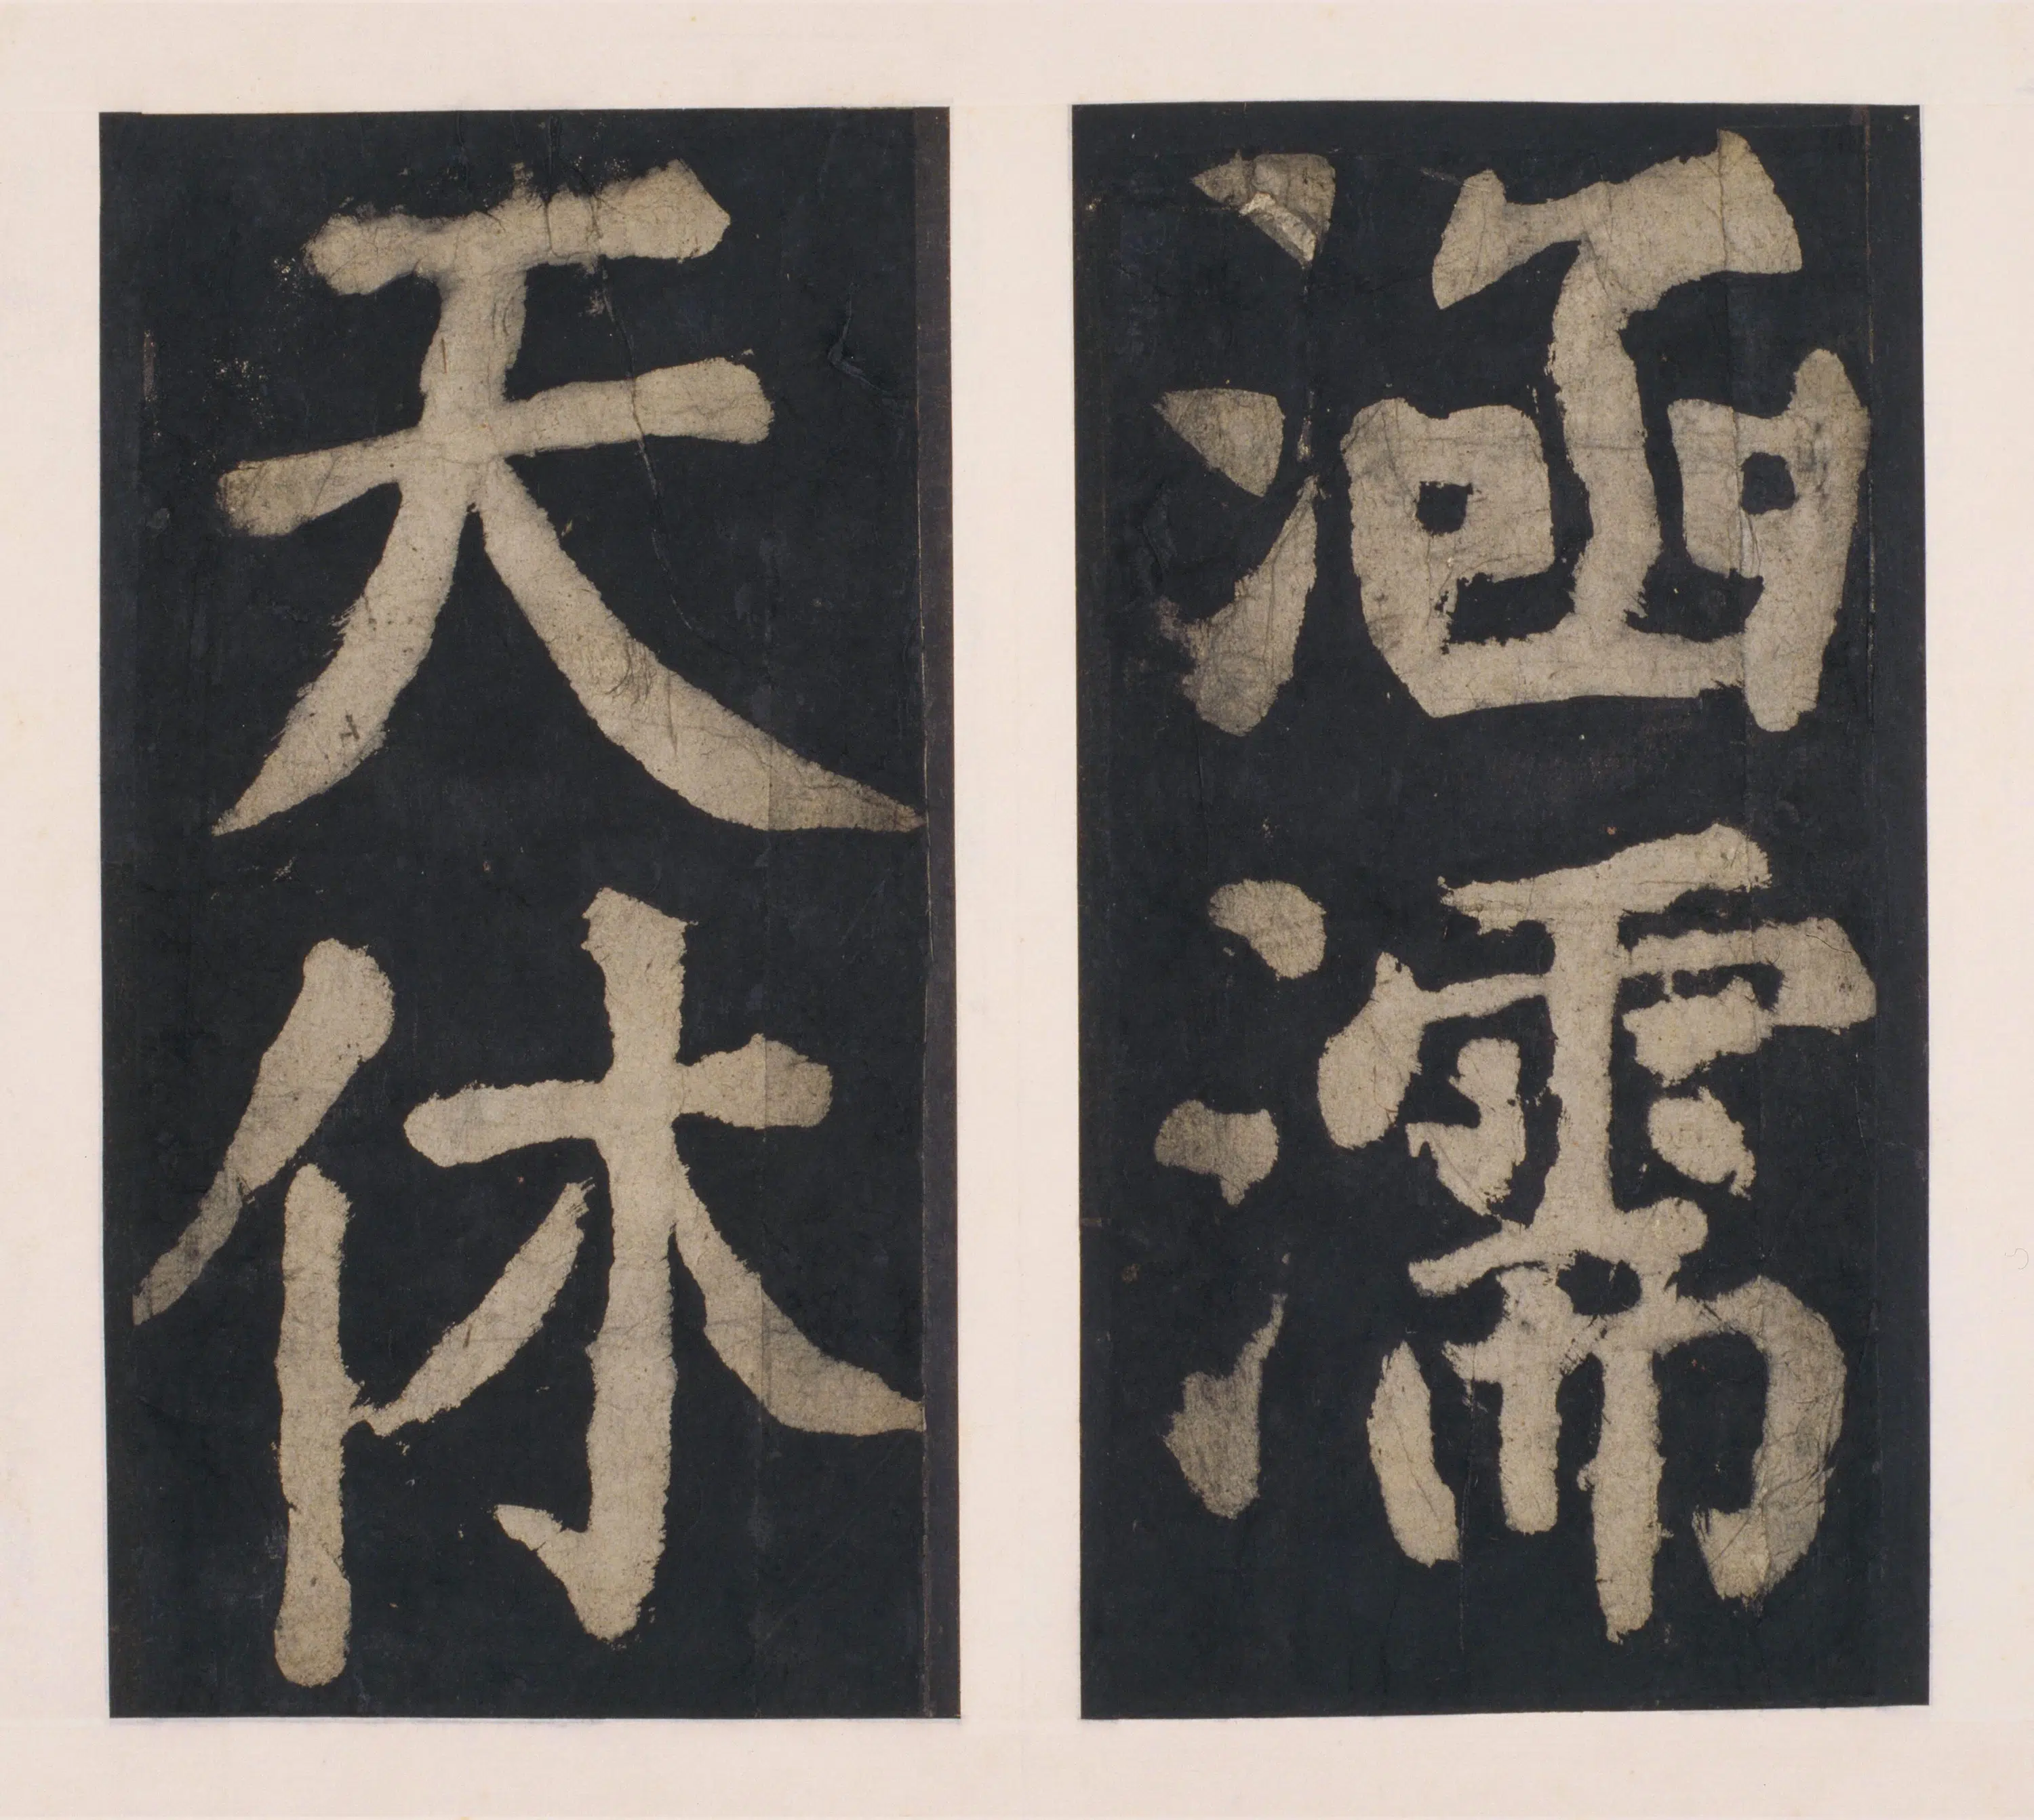 涵濡
天休